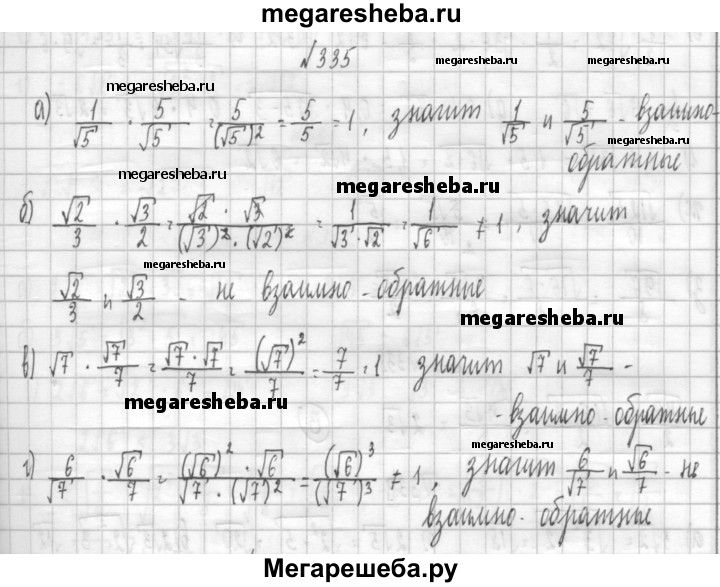 megaresheba.ru
№335
megaresheba.ru megaresheba.ru
а) 1/√5 · 5/√5 = 5/(√5)² = 5/5 = 1, значит 1/√5 и 5/√5 - взаимно-
megaresheba.ru
обратные
megaresheba.ru megaresheba.ru
б) √2/3 · √3/2 = √2 · √3/(√3)² · (√2)² = 1/√3·√2 = 1/√6 ≠ 1, значит
megaresheba.ru
√2/3 и √3/2 - не взаимно-обратные
megaresheba.ru
в) √7 · √7/7 = √7 · √7/7 = (√7)²/7 = 7/7 = 1 значит √7 и √7/7 -
megaresheba.ru
- взаимно-обратные
megaresheba.ru
г) 6/√7 · √6/7 = (√6)² · √6/√7 · (√7)² = (√6)³/(√7)³ ≠ 1, значит 6/√7 и √6/7 - не
взаимно-обратные
Мегарешеба.ру